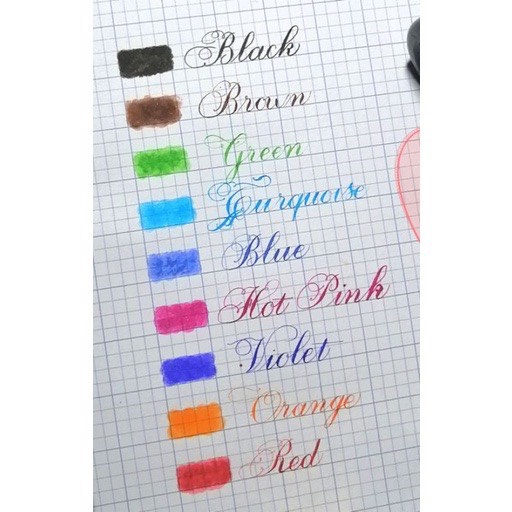 Black
Brown
Green
Turquoise
Blue
Hot Pink
Violet
Orange
Red